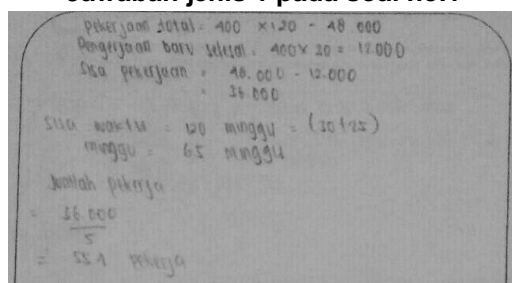 Jawaban jenis 1 pada soal no.1
Pekerjaan total = 400 × 120 = 48.000
Pengerjaan baru selesai = 400 × 30 = 12.000
Sisa pekerjaan = 48.000 - 12.000
= 36.000
Sisa waktu = 120 minggu = (30+25)
minggu = 65 minggu
Jumlah pekerja
= 36.000
5
= 554 pekerja